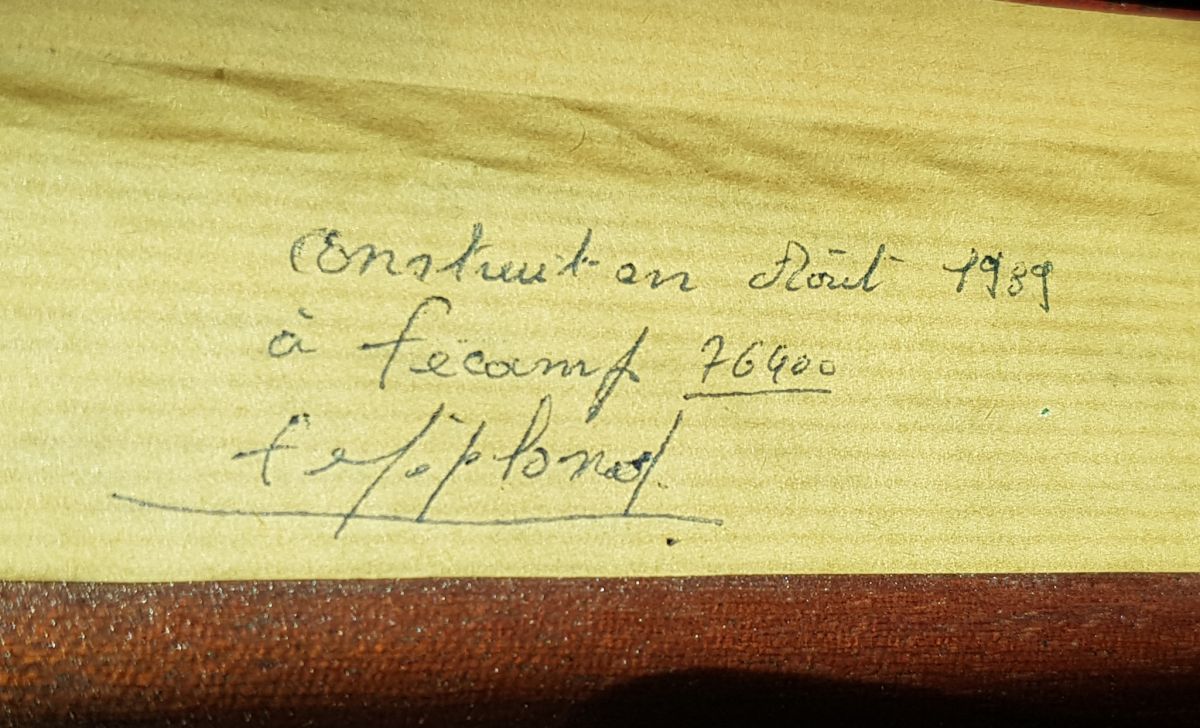 Construit en Août 1989
à fécamp 76400